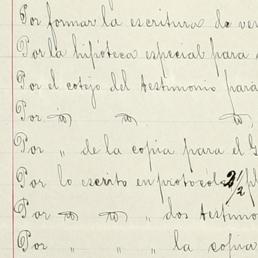 Por formar la escritura de ven
Por la hipoteca especial para
Por el cotejo del testimonio para
Por id id id
Por " de la copia para el G
Por lo escrito en protocolo 2 1/2 pl
Por id id " dos testimo
Por " " " la copia